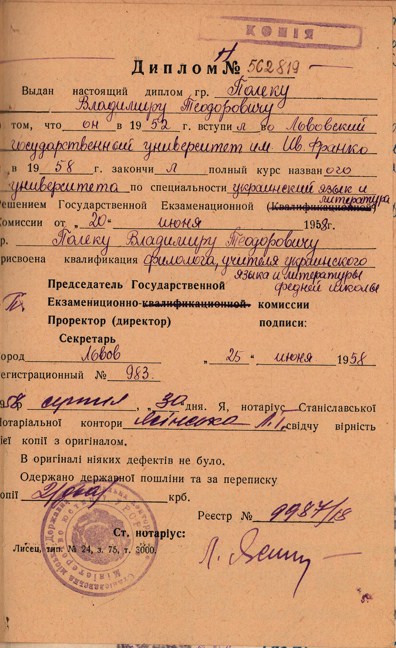 КОПІЯ
Диплом Н № 502819
Выдан настоящий диплом гр. Полеку
Владимиру Теодоровичу
в том, что он в 1952 г. вступил во Львовский
государственный университет им. Ив. Франко
в 1958 г. закончил полный курс названого
университета по специальности украинский язык и
литература
Решением Государственной Экзаменационной (Квалификационной)
Комиссии от „20“ июня 1958г.
гр. Полеку Владимиру Теодоровичу
присвоена квалификация филолога, учителя украинского
языка и литературы
Председатель Государственной средней школы
Экзамениционно-квалификационной комиссии
Проректор (директор) подписи:
Секретарь
город Львов „25“ июня 1958
Регистрационный № 983.
1958 серпня, „30 дня. Я, нотаріус Станіславської
Нотаріальної контори Ясінська Л.Г. свідчу вірність
цієї копії з оригіналом.
В оригіналі ніяких дефектів не було.
Одержано державної пошліни та за переписку
копії 2 (два) крб.
Реєстр № 9987/18
Ст. нотаріус:
Лисец, тип. № 24, з. 75, т. 3000.